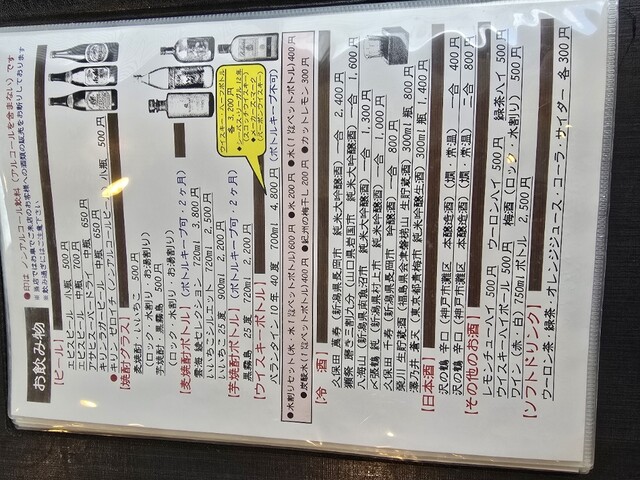 お飲み物
●印は、ノンアルコール飲料(アルコールを含まない)です
※当店ではお車でご来店のお客様への酒類の販売をお断りしております
※飲み過ぎにはご注意下さい
【ビール】
エビスビール 小瓶 500円
エビスビール 中瓶 700円
アサヒスーパードライ 中瓶 650円
キリンラガービール 中瓶 650円
●キリンゼロイチ(ノンアルコールビール) 小瓶 500円
【焼酎グラス】
麦焼酎・いいちこ 500円
(ロック・水割り・お湯割り)
芋焼酎・黒霧島 500円
(ロック・水割り・お湯割り)
【麦焼酎ボトル】(ボトルキープ可・2ヶ月)
雲海 綾セレクション 720ml 3,800円
いいちこ シルエット 720ml 2,500円
いいちこ 25度 900ml 2,200円
【芋焼酎ボトル】(ボトルキープ可・2ヶ月)
黒霧島 25度 720ml 2,200円
【ウイスキーボトル】
バランタイン10年 40度 700ml 4,800円(ボトルキープ不可)
ウイスキー・ハーフボトル
各3,200円
●シーバス・リーガル12年
(スコッチウイスキー)
●メーカーズ・マーク
(バーボンウイスキー)
●水割りセット(氷・水(1㍑ペットボトル)600円 ●氷200円 ●水(1㍑ペットボトル)400円
●炭酸水(1㍑ペットボトル)400円 ●紀州の梅干し 200円 ●カットレモン 300円
【冷酒】
久保田 萬寿(新潟県長岡市 純米大吟醸酒) 一合 2,400円
獺祭 磨き二割九分(山口県岩国市 純米大吟醸酒) 一合 1,600円
八海山(新潟県南魚沼市 純米大吟醸酒) 一合 1,300円
〆張鶴 純(新潟県村上市 純米吟醸酒) 一合 1,000円
久保田 千寿(新潟県長岡市 吟醸酒) 一合 800円
榮川 生貯蔵酒(福島県会津磐梯山 生貯蔵酒) 300ml瓶 800円
澤乃井 蒼天(東京都青梅市 純米吟醸生酒) 300ml瓶 1,400円
【日本酒】
沢の鶴 辛口(神戸市灘区 本醸造酒)(燗・常温) 一合 400円
沢の鶴 辛口(神戸市灘区 本醸造酒)(燗・常温) 二合 800円
【その他のお酒】
レモンチューハイ 500円 ウーロンハイ 500円 緑茶ハイ 500円
ウイスキーハイボール 500円 梅酒(ロック・水割り) 500円
ワイン(赤・白) 750mlボトル 2,500円
【ソフトドリンク】
ウーロン茶・緑茶・オレンジジュース・コーラ・サイダー 各300円